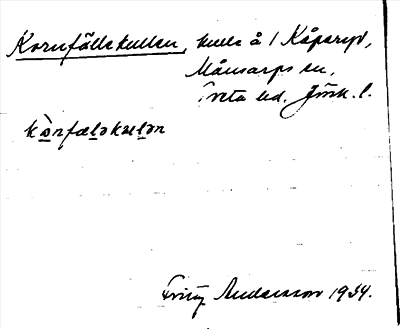 Kornfällekullen, kulle å 1 Kåperyd,
Månsarps sn,
Tveta hd. Jönk. l.
kònfæləkulən
Fritz Andersson 1934.